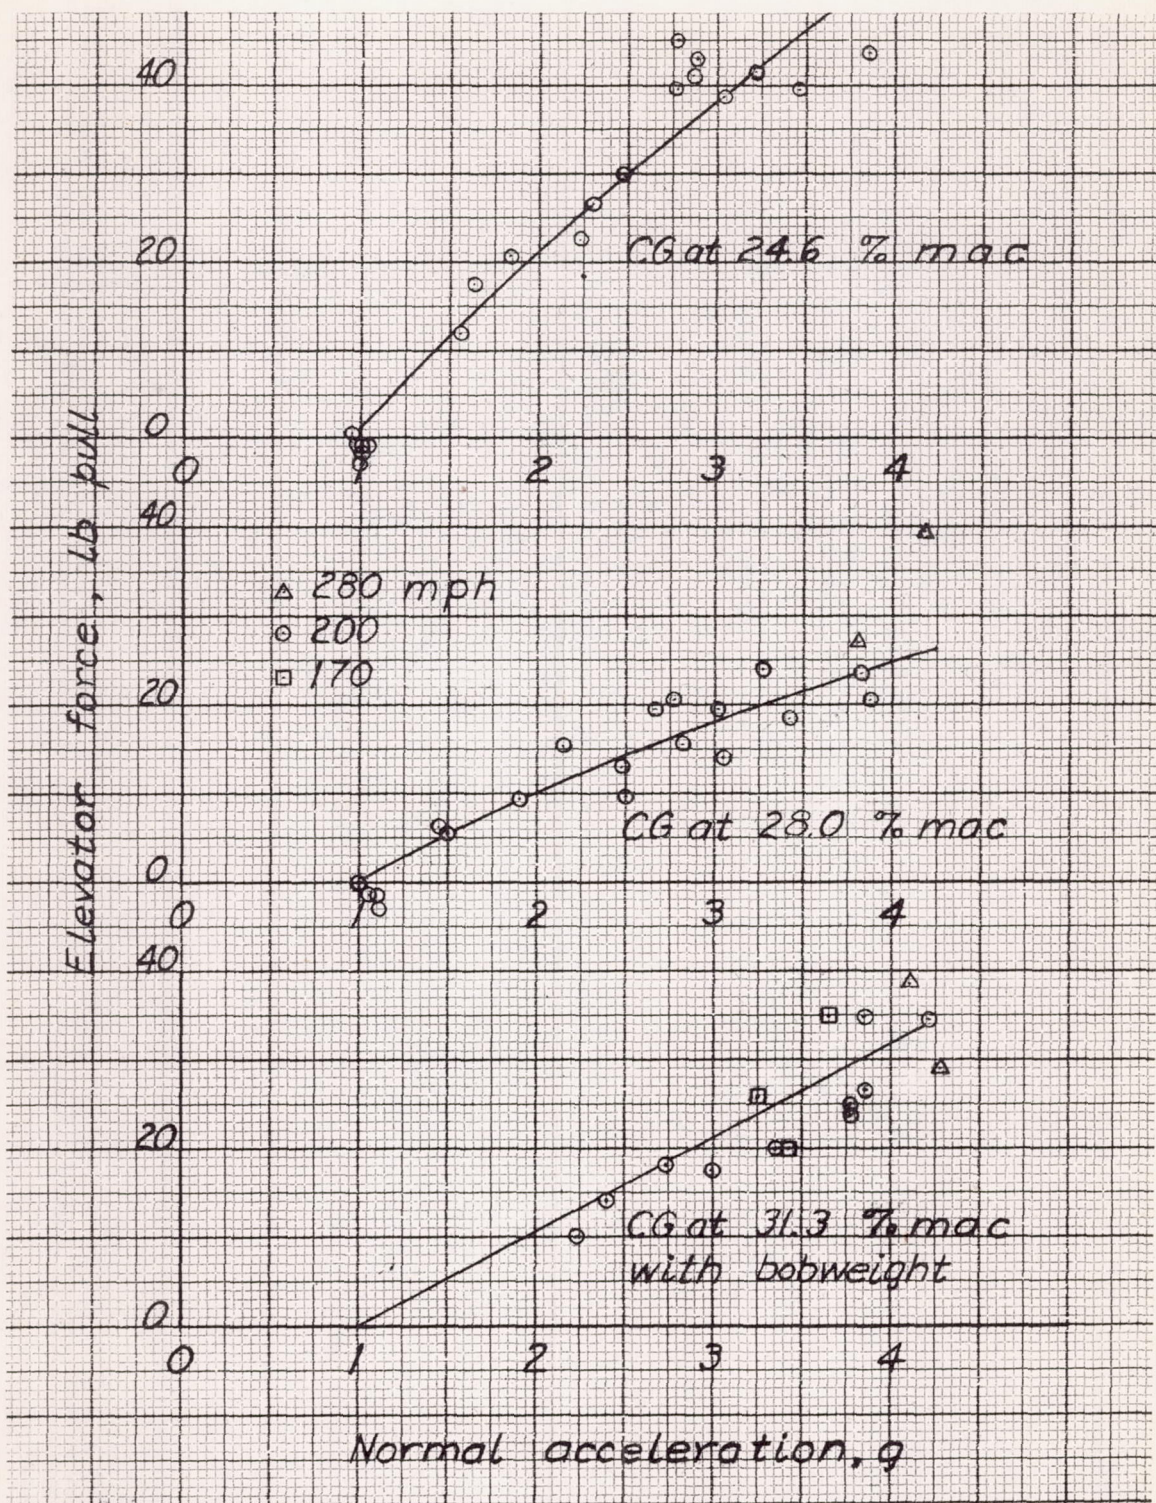 40
20
CG at 24.6 % mac
0
0 1 2 3 4
Elevator force, lb pull
40
△ 280 mph
⊙ 200
⊡ 170
20
CG at 28.0 % mac
0
0 1 2 3 4
40
20
CG at 31.3 % mac
with bobweight
0
0 1 2 3 4
Normal acceleration, g